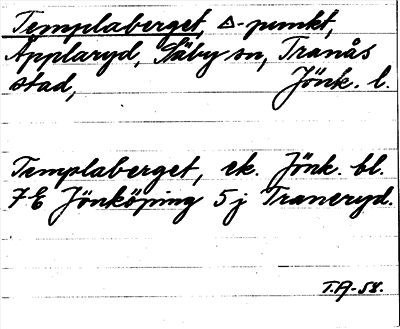 Templaberget, △-punkt,
Äpplaryd, Säby sn, Tranås
stad, Jönk. l.
Templaberget, ek. Jönk. bl.
7E Jönköping 5j Traneryd.